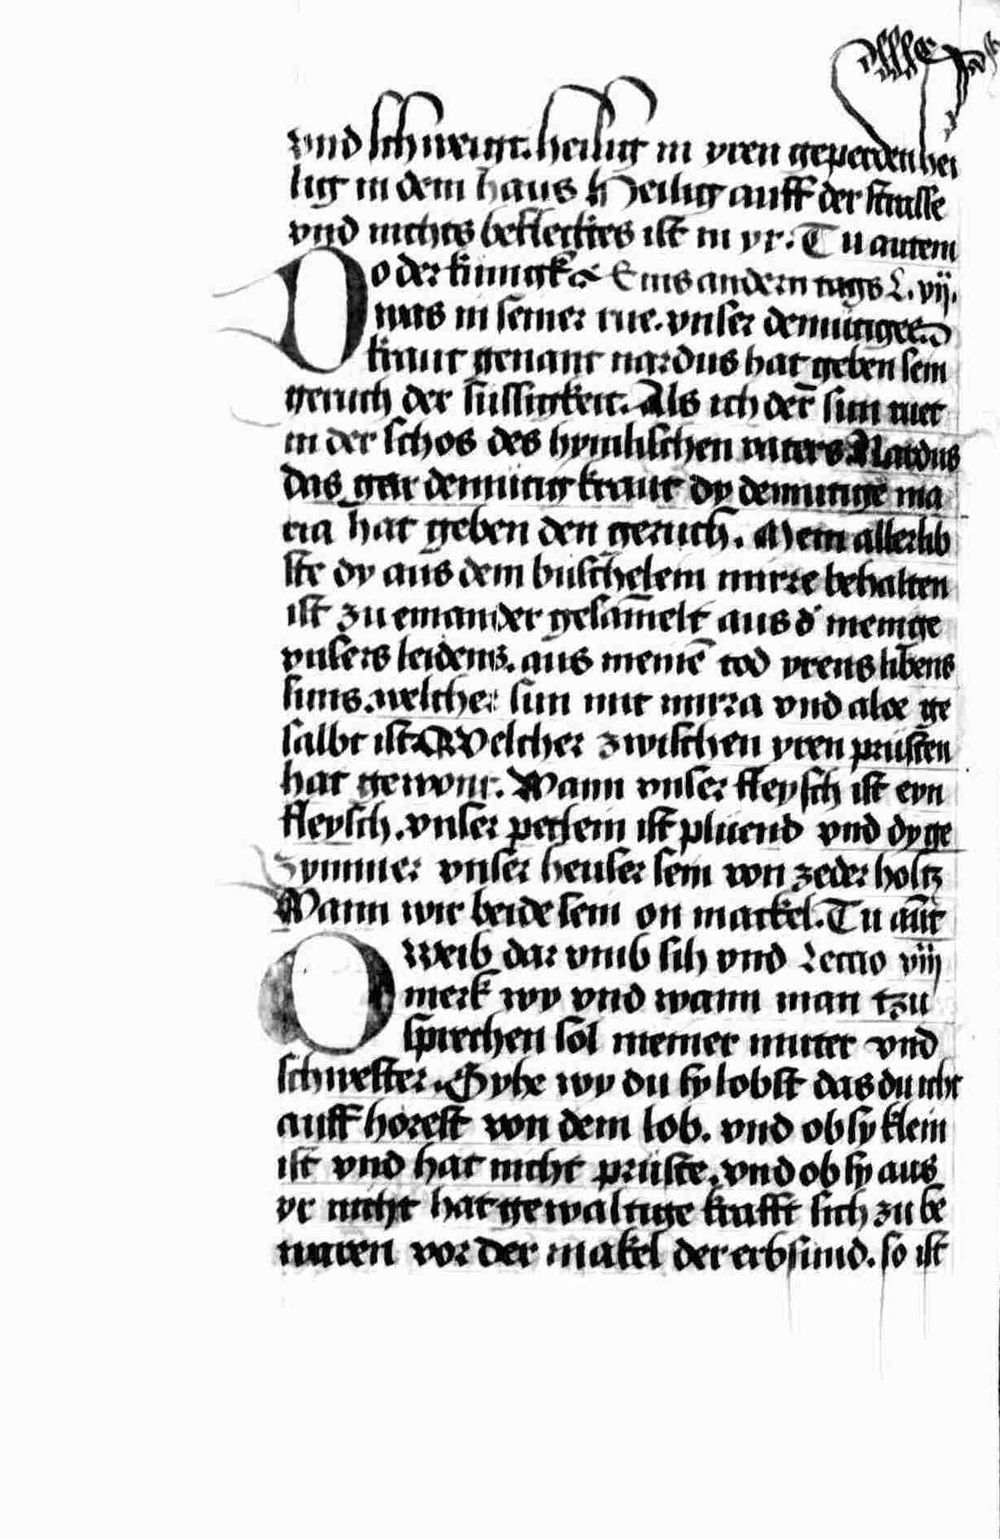 vnd schweigt. heilig in yren geperden hei
lig in dem haus Heilig auff der strasse
vnd nichts beflecktes ist in yr. Tu autem
Do der kunigk Eins andern tags L. vij.
was in seiner rue. vnser demutiges
kraut genant nardus hat geben sein
geruch der sussigkeit. Als ich der sun wer
in der schos des hymlischen vaters Nardus
das gar demutig kraut dy demutige ma
ria hat geben den geruch. Mein allerlib
ste dy aus dem buschelein mirre behalten
ist zu einander gesam̄elt aus d' menige
vnsers leidens. aus meinē tod yrens libens
suns. welcher sun mit mirra vnd aloe ge
salbt ist Welcher zwischen yren prusten
hat gewont. Wann vnser fleysch ist eyn
fleysch. vnser petlein ist pluend vnd dy ge
zymmer vnser heuser sein von zeder holtz
Wann wir beide sein on mackel. Tu aūt
O weib dar vmb sih vnd Lectio viij
merk wy vnd wann man tzu
sprechen sol meiner muter vnd
schwester. Syhe wy du sy lobst das du icht
auff horest von dem lob. vnd ob sy klein
ist vnd hat nicht pruste. vnd ob sy aus
yr nicht hat gewaltige krafft sich zu be
waren vor der makel der erbsund. so ist